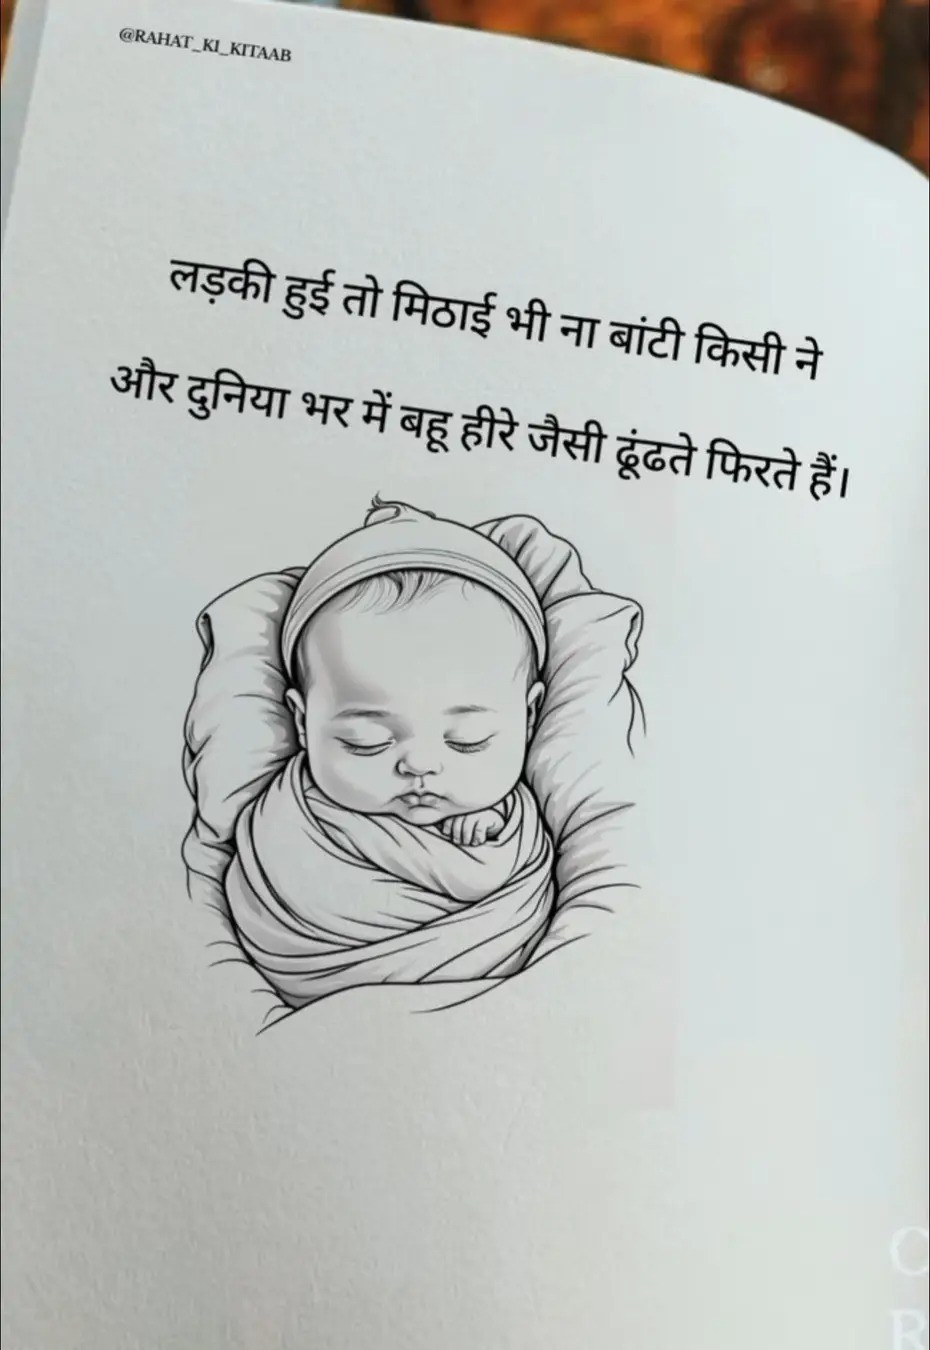 @RAHAT_KI_KITAAB
लड़की हुई तो मिठाई भी ना बांटी किसी ने
और दुनिया भर में बहू हीरे जैसी ढूंढते फिरते हैं।
C
R